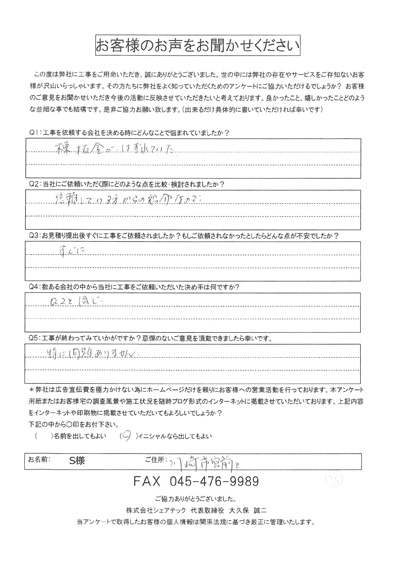 お客様のお声をお聞かせください
この度は弊社に工事をご用命いただき、誠にありがとうございました。世の中には弊社の存在やサービスをご存知ないお客
様が沢山いらっしゃいます。その方たちに弊社をよく知っていただくためのアンケートにご協力いただけるでしょうか? お客様
のご意見をお聞かせいただき今後の活動に反映させていただきたいと考えております。良かったこと、嬉しかったことどのよう
な些細な事でも結構です。是非ご協力お願い致します。(出来るだけ具体的に書いていただければ幸いです)
Q1:工事を依頼する会社を決める時にどんなことで悩まれていましたか?
棟板金がはずれていた
Q2:当社にご依頼いただく際にどのような点を比較・検討されましたか?
信頼している方からの紹介なので
Q3:お見積り提出後すぐに工事をご依頼されましたか?もしご依頼されなかったとしたらどんな点が不安でしたか?
すぐに
Q4:数ある会社の中から当社に工事をご依頼いただいた決め手は何ですか?
Q2と同じ
Q5:工事が終わってみていかがですか?忌憚のないご意見を頂戴できましたら幸いです。
特に問題ありません
*弊社は広告宣伝費を極力かけない為にホームページだけを頼りにお客様への営業活動を行っております。本アンケート
用紙またはお客様宅の調査風景や施工状況を随時ブログ形式のインターネットに掲載させていただいております。上記内容
をインターネットや印刷物に掲載させていただいてもよろしいでしょうか?
下記の中から〇印をお付下さい。
( )名前を出してもよい (〇)イニシャルなら出してもよい
お名前: S様 ご住所: 川崎市宮前区
FAX 045-476-9989
ご協力ありがとうございました。
株式会社シェアテック 代表取締役 大久保 誠二
当アンケートで取得したお客様の個人情報は関係法規に基づき厳正に管理いたします。